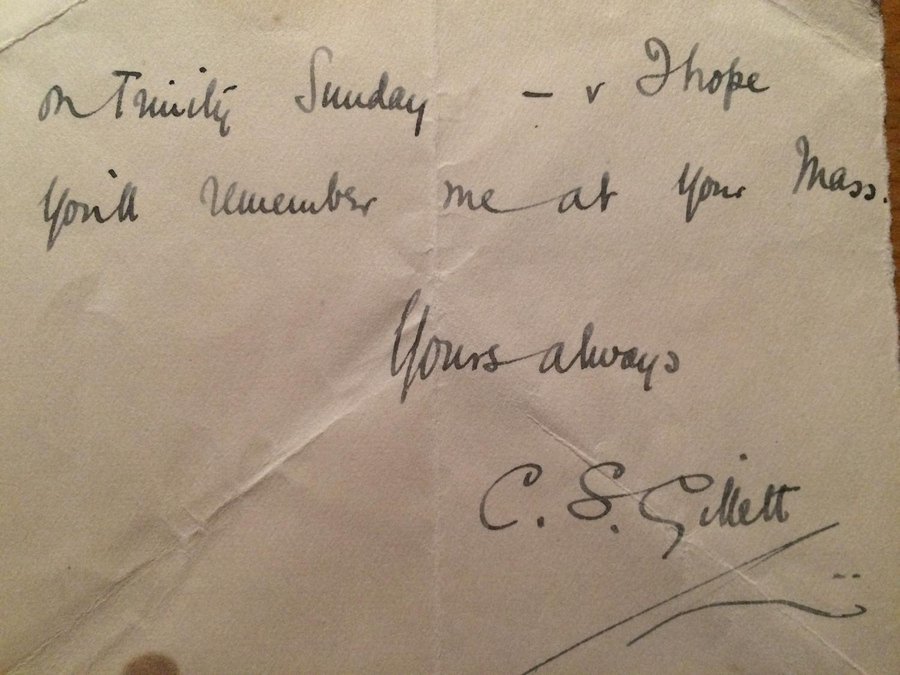 on Trinity Sunday – & I hope
you'll remember me at your Mass.
Yours always
C. S. Gillett